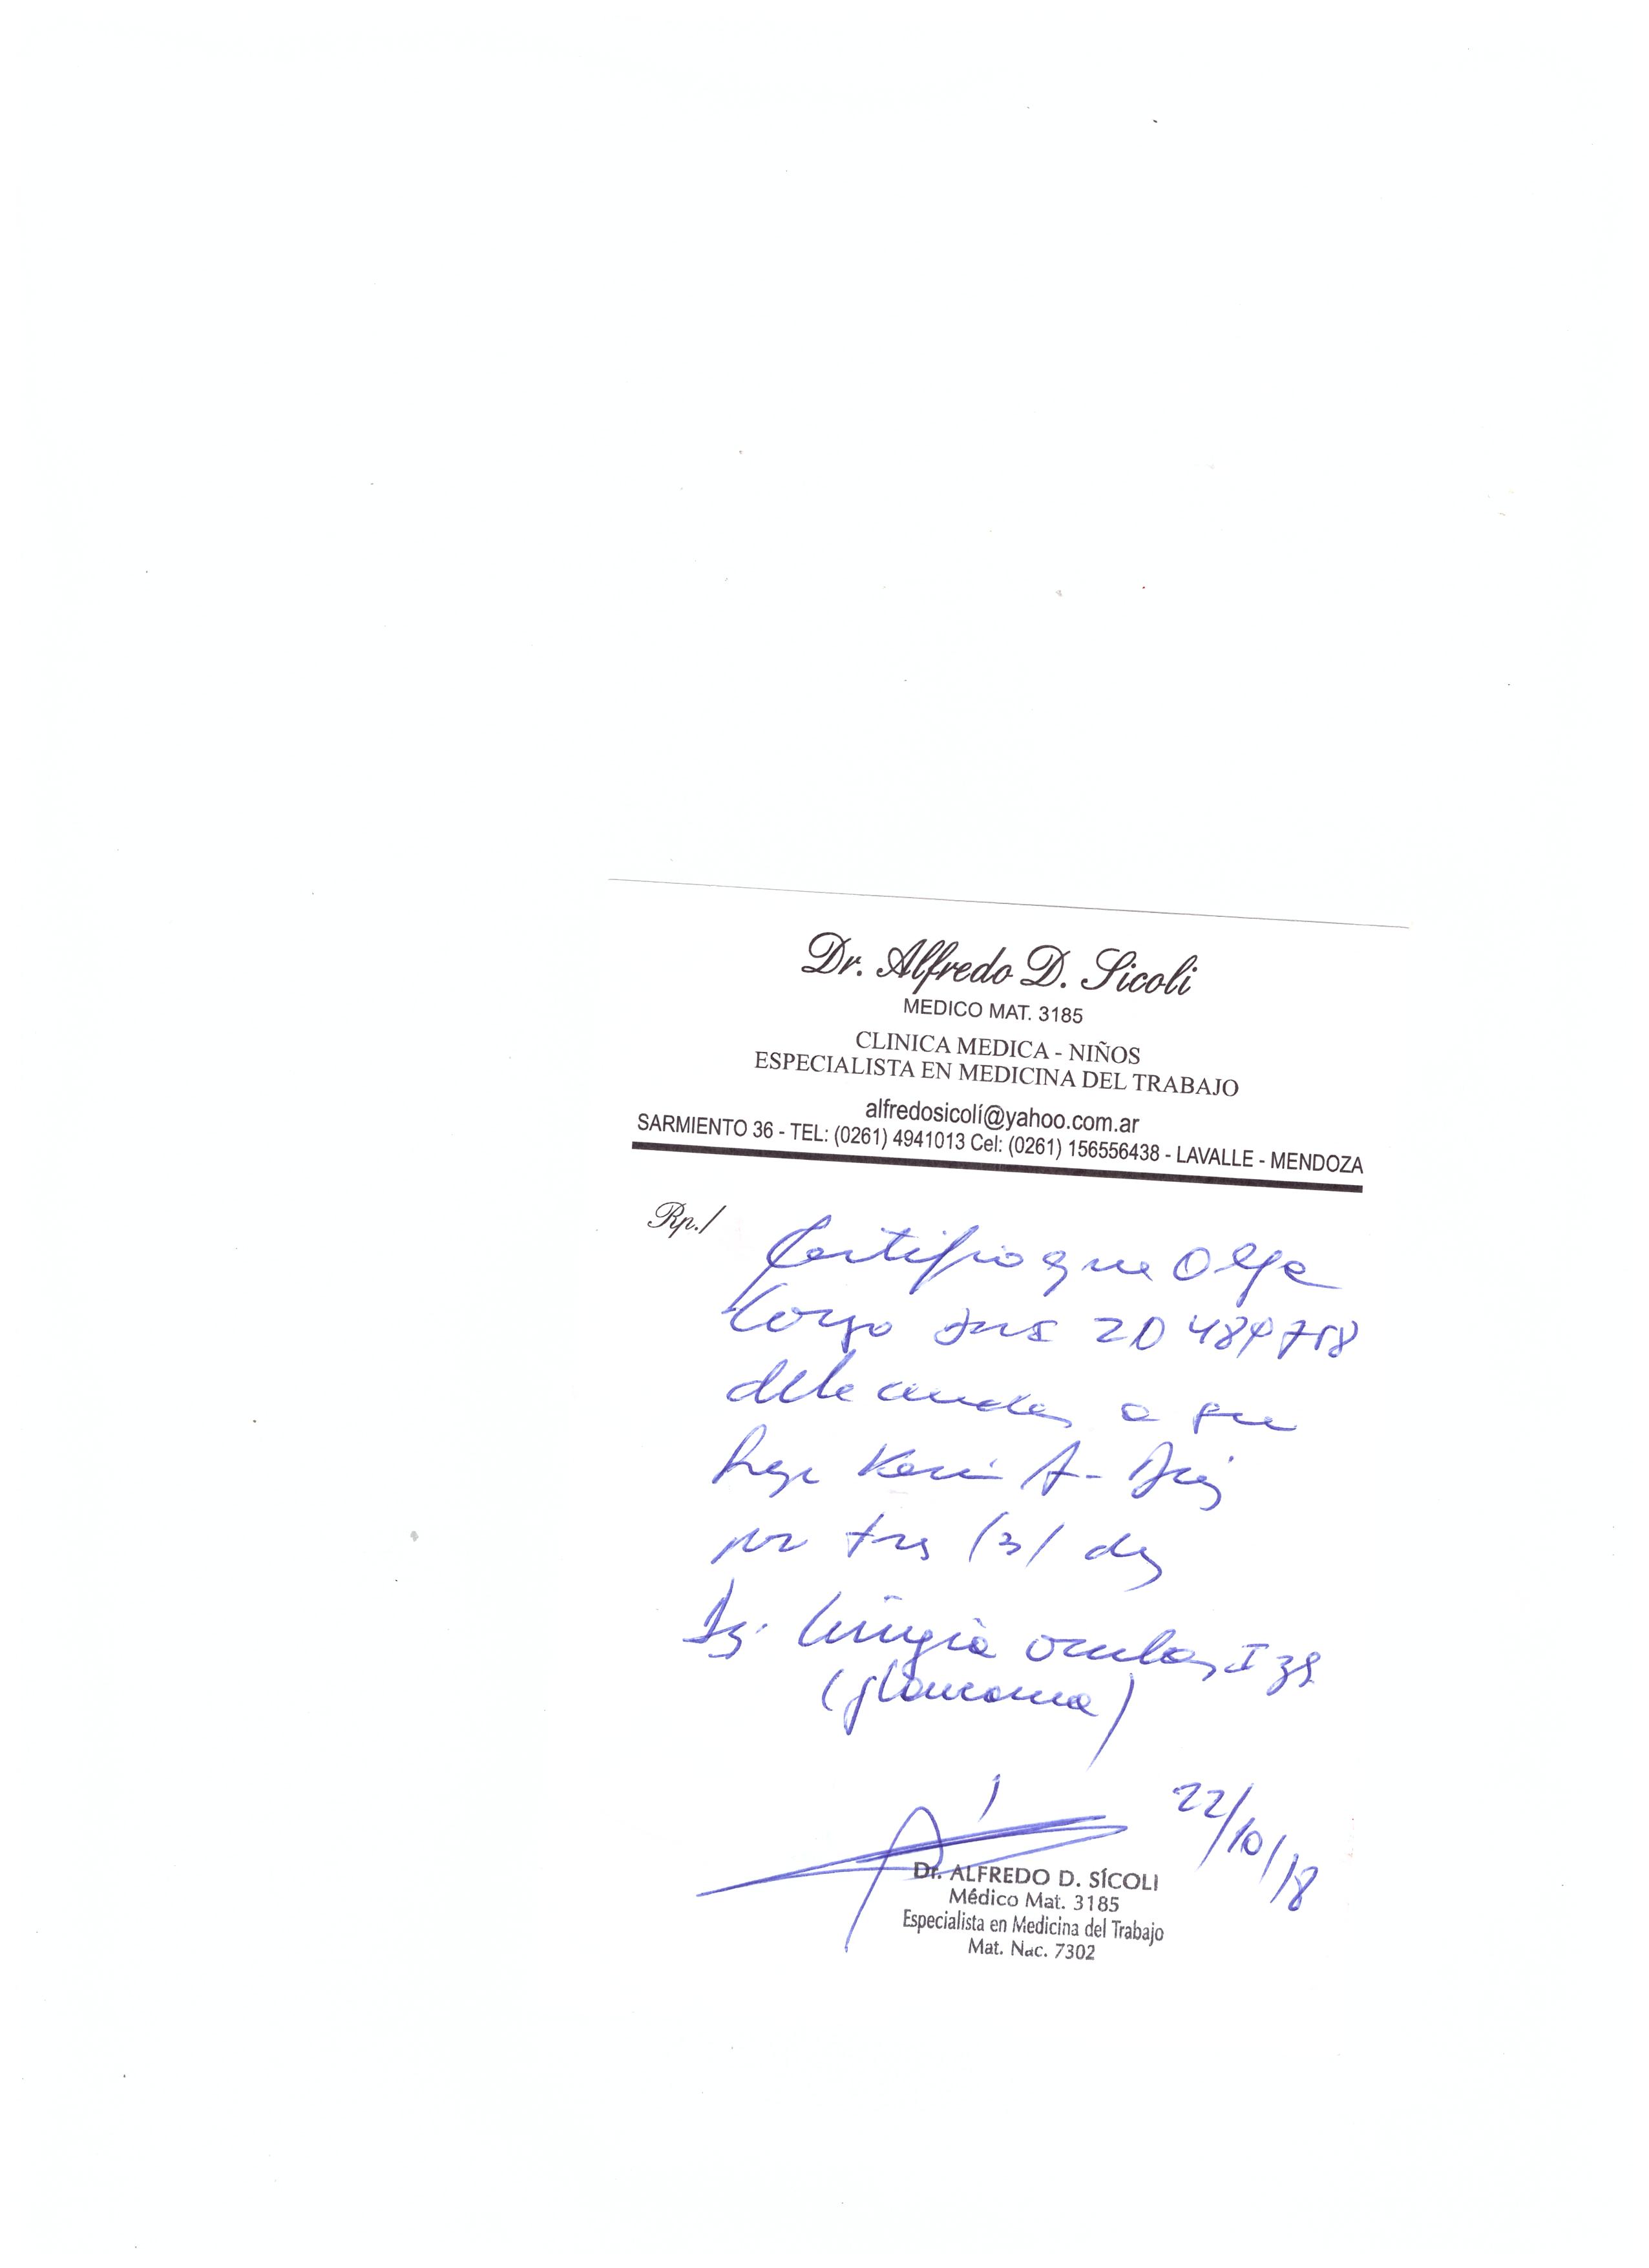 Dr. Alfredo D. Sicoli
MEDICO MAT. 3185
CLINICA MEDICA - NIÑOS
ESPECIALISTA EN MEDICINA DEL TRABAJO
alfredosicolí@yahoo.com.ar
SARMIENTO 36 - TEL: (0261) 4941013 Cel: (0261) 156556438 - LAVALLE - MENDOZA
Rp./
Certifico que Olga
debe cuidar a su
A.
por tres (3) dias
Cirugia ocular Izq
(glaucoma)
22/10/18
Dr. ALFREDO D. SÍCOLI
Médico Mat. 3185
Especialista en Medicina del Trabajo
Mat. Nac. 7302